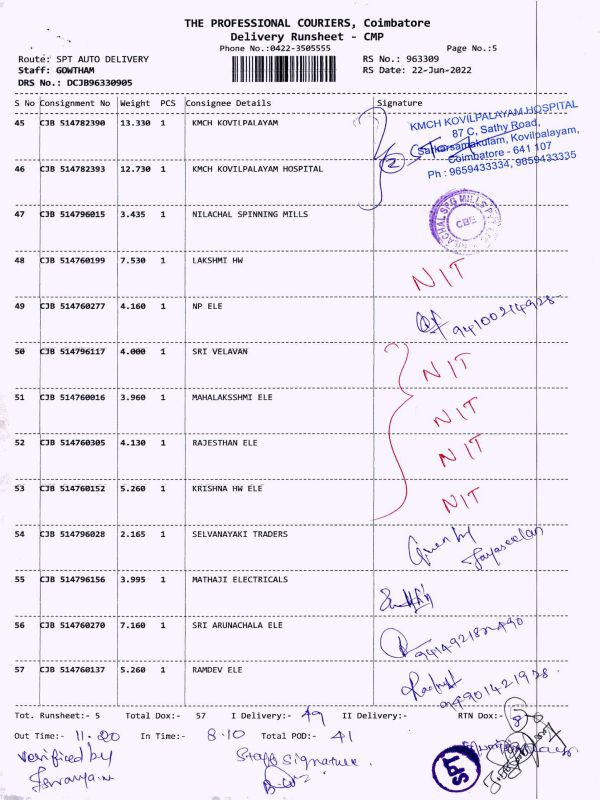 THE PROFESSIONAL COURIERS, Coimbatore
Delivery Runsheet - CMP
Phone No.:0422-3505555
Page No.:5
Route: SPT AUTO DELIVERY
RS No.: 963309
Staff: GOWTHAM
RS Date: 22-Jun-2022
DRS No.: DCJB96330905
S No Consignment No Weight PCS Consignee Details Signature
45 CJB 514782390 13.330 1 KMCH KOVILPALAYAM
KMCH KOVILPALAYAM HOSPITAL
87 C, Sathy Road,
Sarkarsamakulam, Kovilpalayam,
Coimbatore - 641 107
Ph : 9659433334, 9659433335
2
46 CJB 514782393 12.730 1 KMCH KOVILPALAYAM HOSPITAL
47 CJB 514796015 3.435 1 NILACHAL SPINNING MILLS
NILACHAL SPG MILLS
CBE
48 CJB 514760199 7.530 1 LAKSHMI HW
NIT
49 CJB 514760277 4.160 1 NP ELE
50 CJB 514796117 4.000 1 SRI VELAVAN
NIT
51 CJB 514760016 3.960 1 MAHALAKSSHMI ELE
NIT
52 CJB 514760305 4.130 1 RAJESTHAN ELE
NIT
53 CJB 514760152 5.260 1 KRISHNA HW ELE
NIT
54 CJB 514796028 2.165 1 SELVANAYAKI TRADERS
Given by
Jayaseelan
55 CJB 514796156 3.995 1 MATHAJI ELECTRICALS
56 CJB 514760270 7.160 1 SRI ARUNACHALA ELE
57 CJB 514760137 5.260 1 RAMDEV ELE
Tot. Runsheet:- 5 Total Dox:- 57 I Delivery:- 49 II Delivery:- RTN Dox:- 8
Out Time:- 11.20 In Time:- 8.10 Total POD:- 41
Verified by
Staff Signature.
SPT